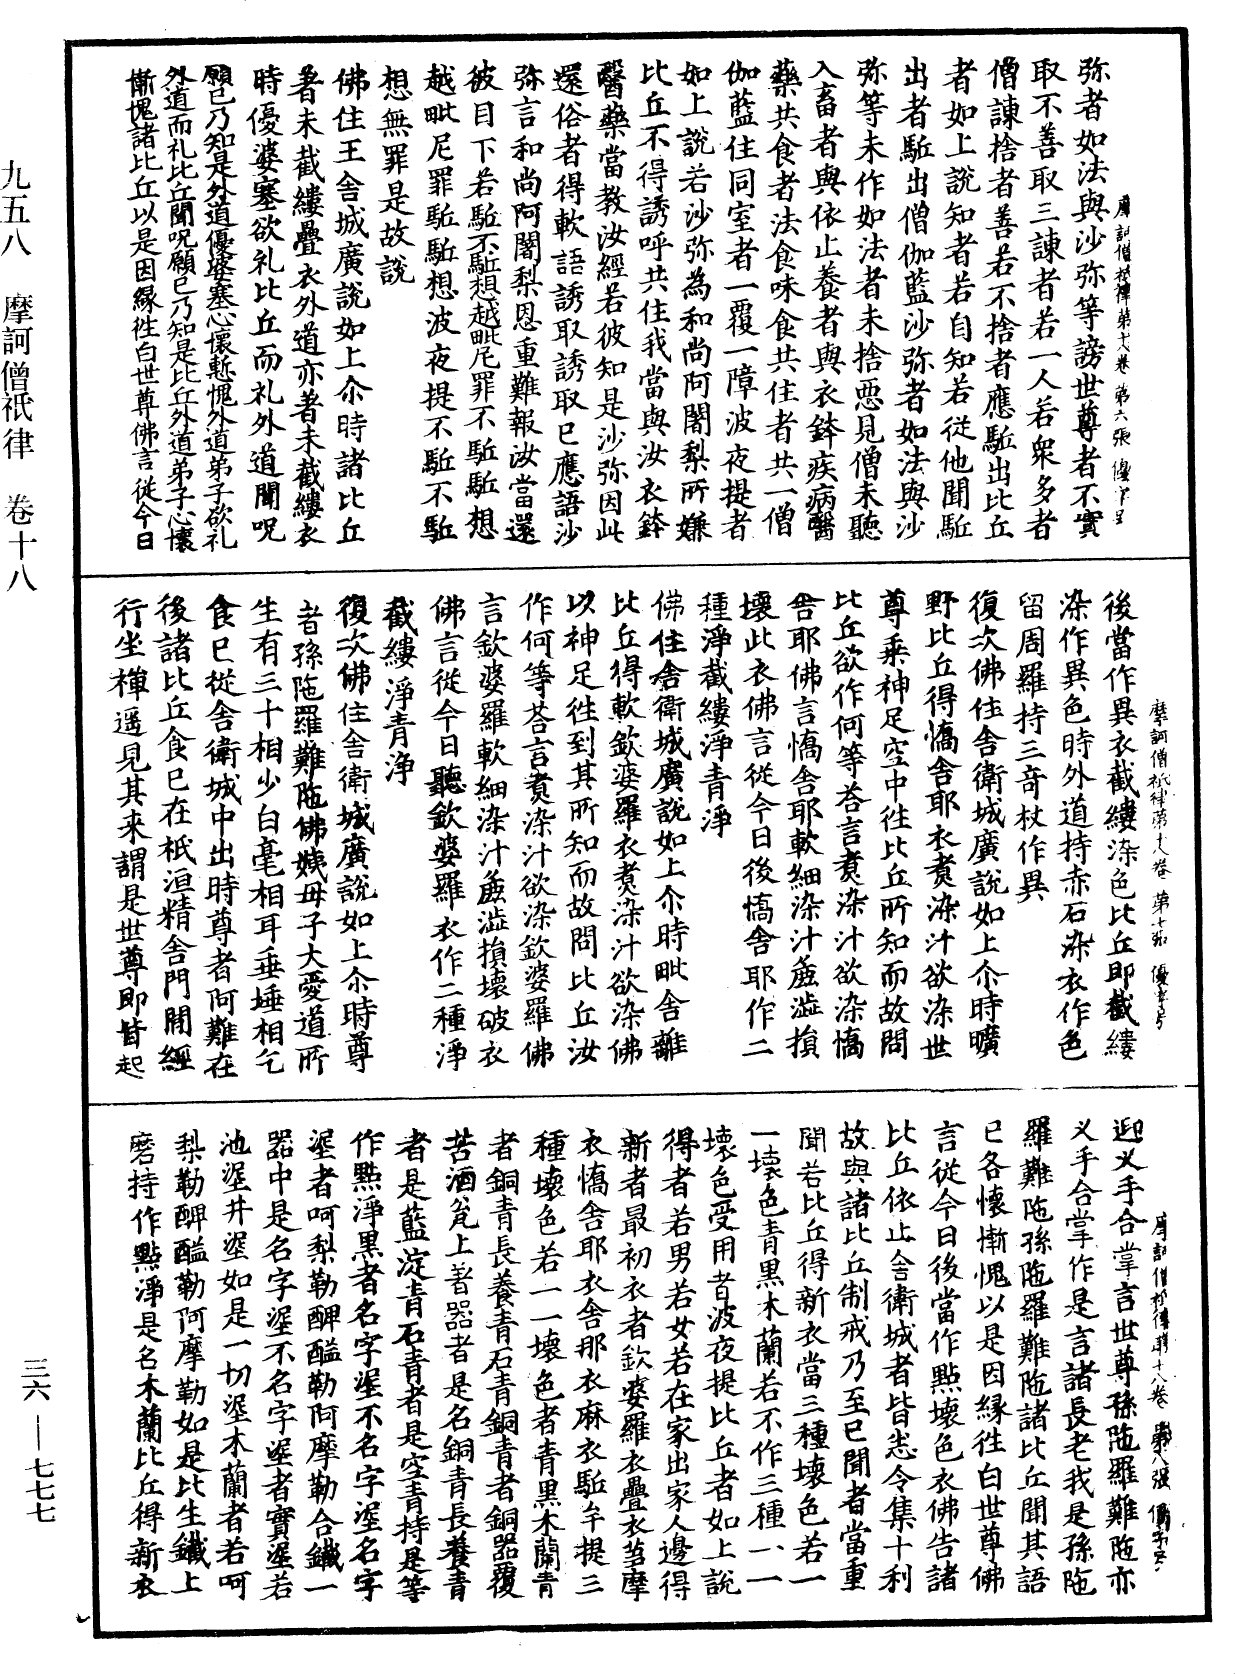 摩訶僧祇律第十八卷 第六張 優字号
弥者如法與沙弥等謗世尊者不實
取不善取三諫者若一人若衆多者
僧諫捨者善若不捨者應駈出比丘
者如上說知者若自知若從他聞駈
出者駈出僧伽藍沙弥者如法與沙
弥等未作如法者未捨惡見僧未聽
入畜者與依止養者與衣鉢疾病醫
藥共食者法食味食共住者共一僧
伽藍住同室者一覆一障波夜提者
如上說若沙弥為和尚阿闍梨所嫌
比丘不得誘呼共住我當與汝衣鉢
醫藥當教汝經若彼知是沙弥因此
還俗者得軟語誘取誘取已應語沙
弥言和尚阿闍梨恩重難報汝當還
彼目下若駈不駈想越毗尼罪不駈駈想
越毗尼罪駈駈想波夜提不駈不駈
想無罪是故說
佛住王舍城廣說如上尒時諸比丘
著未截縷疊衣外道亦著未截縷衣
時優婆塞欲礼比丘而礼外道聞呪
願已乃知是外道優婆塞心懷慙愧外道弟子欲礼
外道而礼比丘聞呪願已乃知是比丘外道弟子心懷
慚愧諸比丘以是因緣徃白世尊佛言從今日
摩訶僧祇律第十八卷 第七張 優字号
後當作異衣截縷染色比丘即截縷
染作異色時外道持赤石染衣作色
留周羅持三奇杖作異
復次佛住舍衛城廣說如上尒時曠
野比丘得憍舍耶衣煑染汁欲染世
尊乘神足空中徃比丘所知而故問
比丘欲作何等荅言煑染汁欲染憍
舍耶佛言憍舍耶軟細染汁麁澁損
壞此衣佛言從今日後憍舍耶作二
種淨截縷淨青淨
佛住舍衛城廣說如上尒時毗舍離
比丘得軟欽婆羅衣煑染汁欲染佛
以神足徃到其所知而故問比丘汝
作何等荅言煑染汁欲染欽婆羅佛
言欽婆羅軟細染汁麁澁損壞破衣
佛言從今日聽欽婆羅衣作二種淨
截縷淨青淨
復次佛住舍衛城廣說如上尒時尊
者孫陁羅難陁佛姨母子大愛道所
生有三十相少白毫相耳垂埵相乞
食已從舍衛城中出時尊者阿難在
後諸比丘食已在祇洹精舍門間經
行坐禪遥見其来謂是世尊即皆起
摩訶僧祇律第十八卷 第八張 優字号
迎叉手合掌言世尊孫陁羅難陁亦
叉手合掌作是言諸長老我是孫陁
羅難陁孫陁羅難陁諸比丘聞其語
已各懷慚愧以是因緣徃白世尊佛
言從今日後當作點壞色衣佛告諸
比丘依止舍衛城者皆悉令集十利
故與諸比丘制戒乃至已聞者當重
聞若比丘得新衣當三種壞色若一
一壞色青黒木蘭若不作三種一一
壞色受用者波夜提比丘者如上說
得者若男若女若在家出家人邊得
新者最初衣者欽婆羅衣疊衣芻摩
衣憍舍耶衣舍那衣麻衣駈牟提三
種壞色若一一壞色者青黒木蘭青
者銅青長養青石青銅青者銅器覆
苦酒瓮上著器者是名銅青長養青
者是藍淀青石青者是空青持是等
作點淨黒者名字埿不名字埿名字
埿者呵梨勒酼醯勒阿摩勒合鐵一
器中是名字埿不名字埿者實埿若
池埿井埿如是一切埿木蘭者若呵
梨勒酼醯勒阿摩勒如是比生鐵上
磨持作點淨是名木蘭比丘得新衣
九五八 摩訶僧祇律 卷十八
三六—七七七